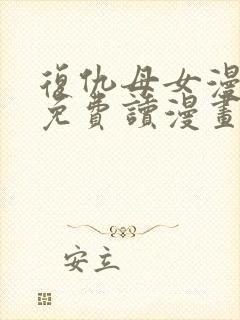 復仇母女漫
免費讀漫畫
安立